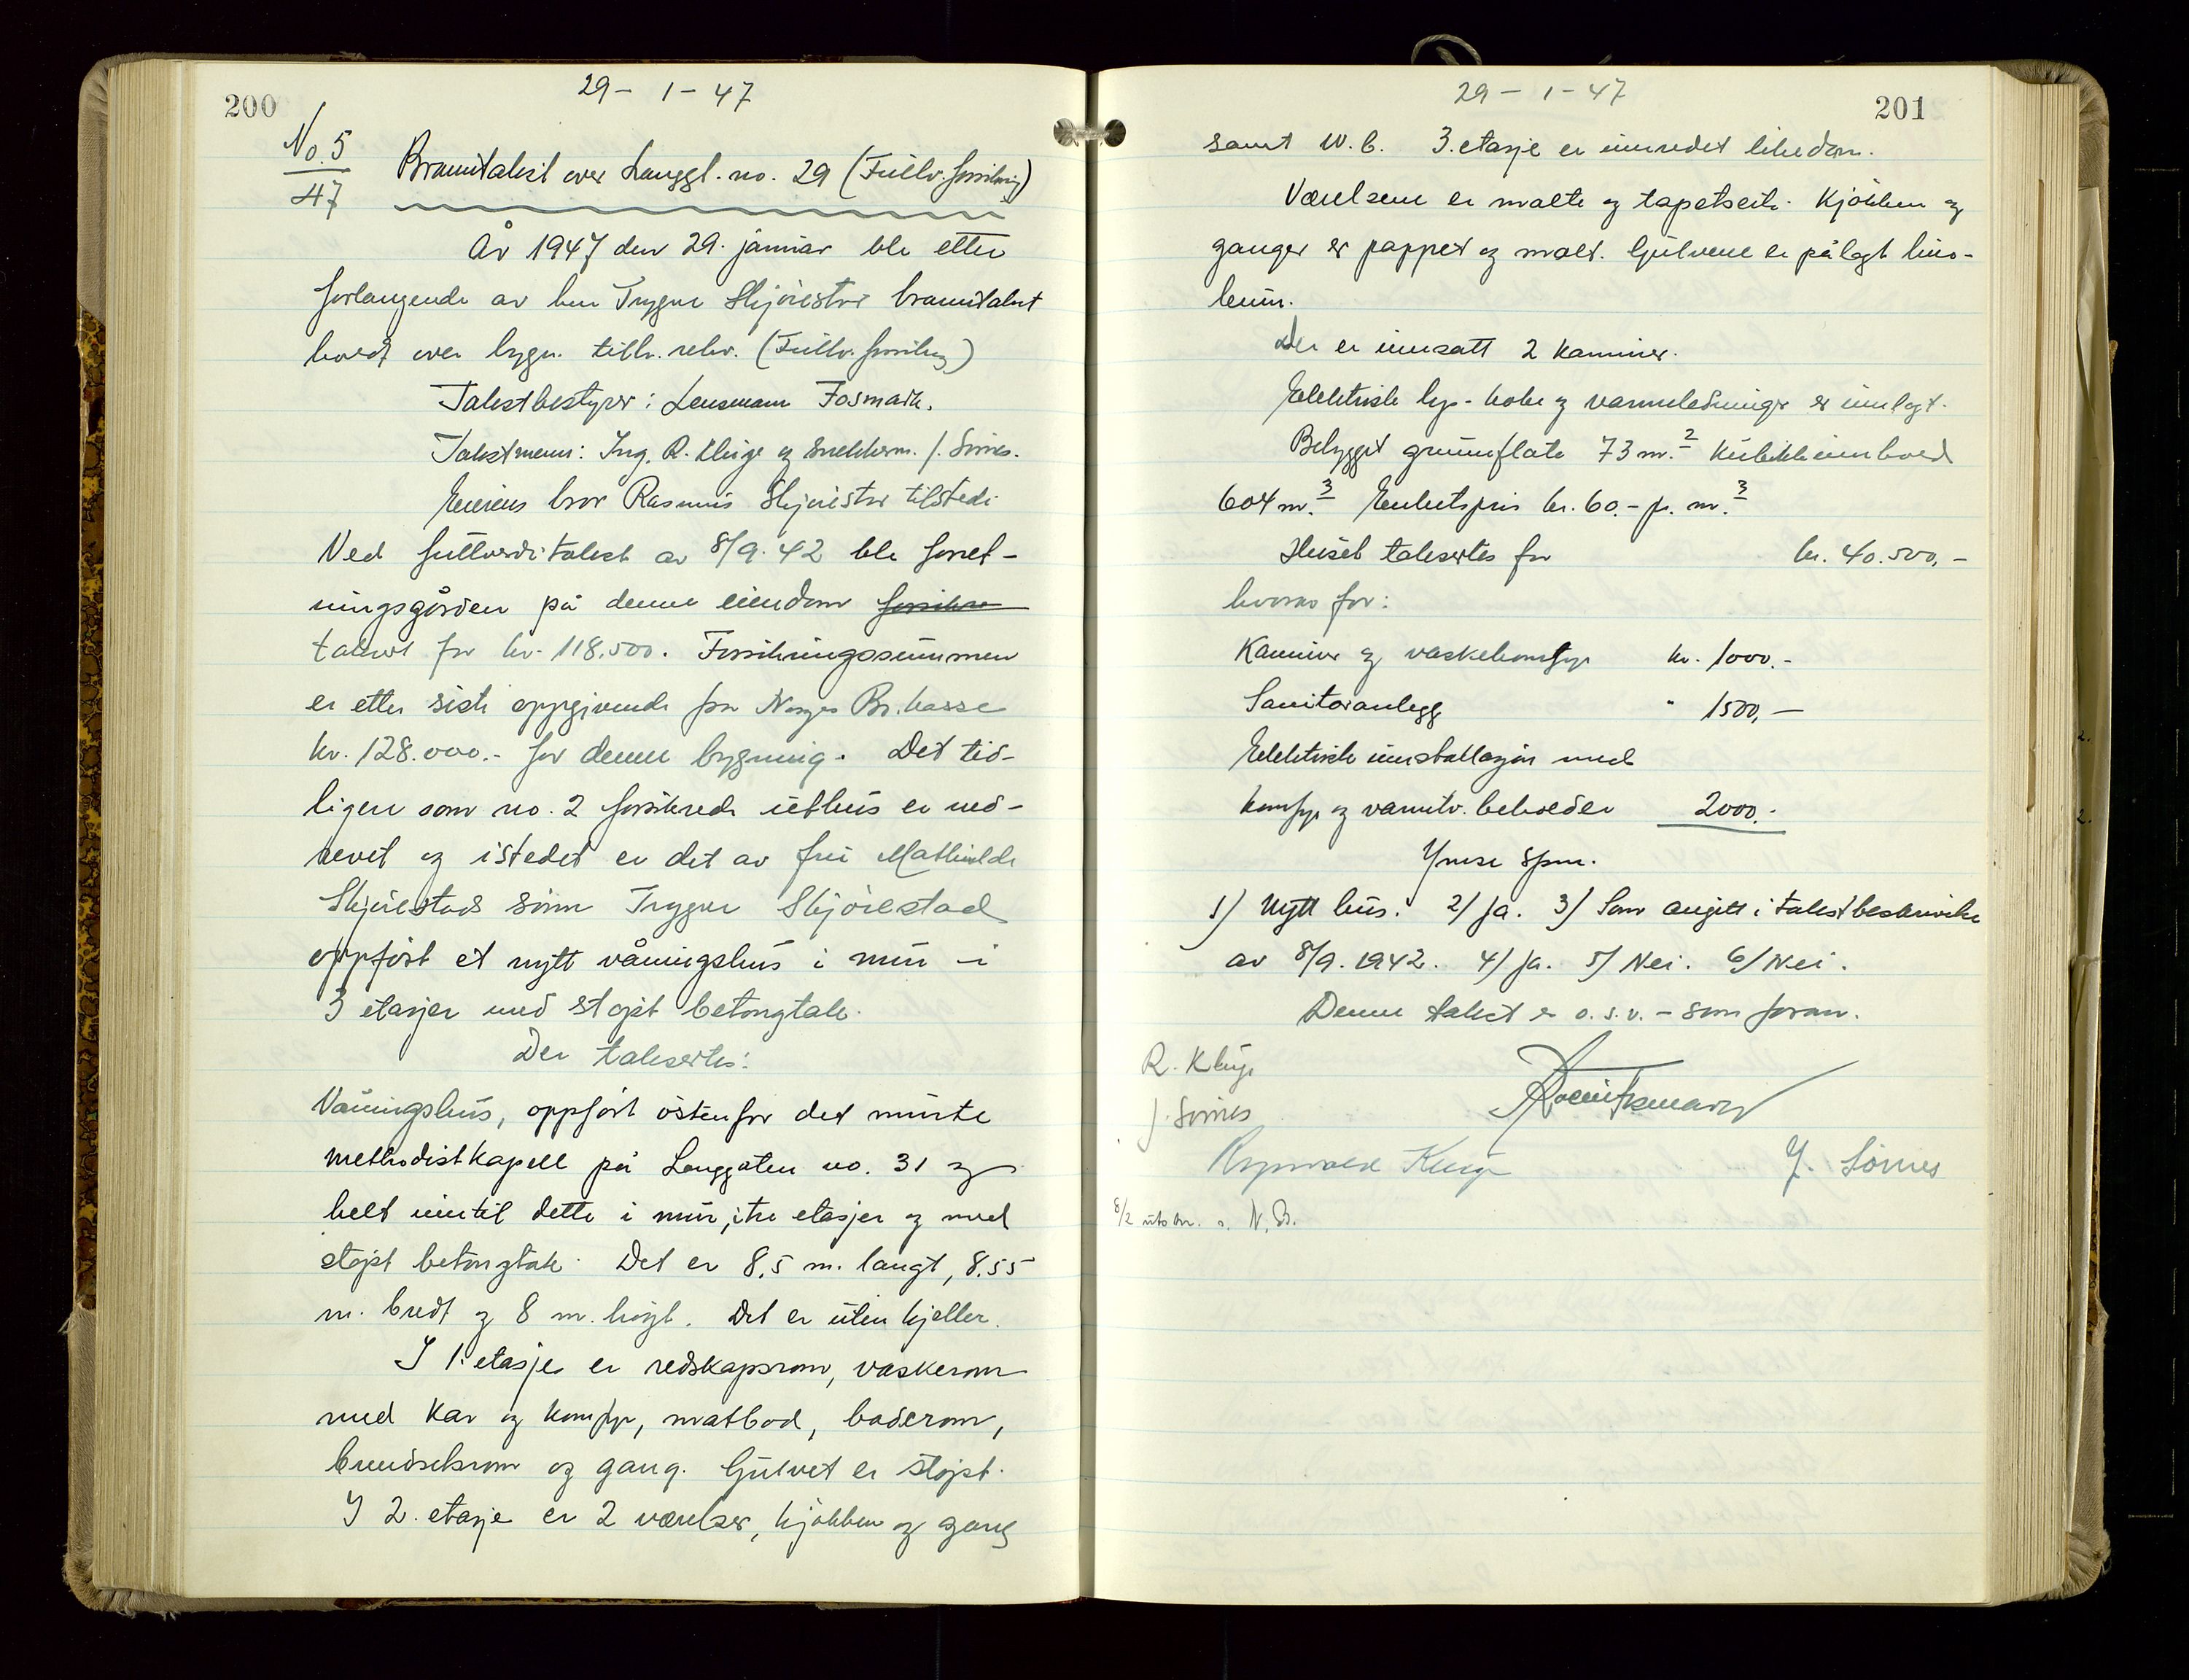 200
29 - 1 - 47
No. 5
47
Branntakst over Langgt. no. 29 (Fullv. forsikring)
År 1947 den 29. januar ble etter
forlangende av herr Trygve Skjörestad branntakst
holdt over bygn. tilh. rekv. (Fullv. forsikring)
Takstbestyrer: Lensmann Fosmark.
Takstmenn: Ing. R. Kluge og snekkerm. J. Sörnes.
Eierens bror Rasmus Skjörestad tilstede.
Ved fullverditakst av 8/9. 42 ble forret-
ningsgården på denne eiendom forsikre
taksert for kr. 118.500. Forsikringssummen
er etter siste oppgivende fra Norges Br. kasse
kr. 128.000.- for denne bygning. Det tid-
ligere som no. 2 forsikrede uthus er ned-
revet og istedet er det av fru Mathilde
Skjörestads sönn Trygve Skjörestad
oppfört et nytt våningshus i mur i
3 etasjer med stöpt betongtak.
Der takseртes:
Våningshus, oppfört östenfor det murte
methodistkapell på Langgaten no. 31 og
helt inntil dette i mur, i tre etasjer og med
stöpt betongtak. Det er 8,5 m. langt, 8.55
m. bredt og 8 m. höyt. Det er uten kjeller.
I 1. etasje er redskapsrom, vaskerom
med kar og komfyr, matbod, baderom,
brendselsrom og gang. Gulvet er stöpt.
I 2. etasje er 2 værelser, kjökken og gang
29 - 1 - 47
201
samt W.C. 3. etasje er innredet likedan.
Værelsene er malte og tapetserte. Kjökken og
ganger er pappet og malt. Gulvene er pålagt lino-
leum.
Der er innsatt 2 kaminer.
Elektrisk lys- koke og varmeledninger er innlagt.
Bebygget grunnflate 73 m.2 Kubikkinnhold
604 m.3 Enhetspris kr. 60.- pr. m.3
Huset taksertes for kr. 40.500,-
hvorav for:
Kaminer og vaskekomfyr kr. 1000.-
Sanitæranlegg " 1500,-
Elektrisk installasjon med
komfyr og varmtv. beholder 2000.-
Ymse spm.
1) Nytt hus. 2) Ja. 3) Som angitt i takstbeskrivelse
av 8/9. 1942. 4) Ja. 5) Nei. 6) Nei.
Denne takst er o.s.v. - som foran.
R. Kluge
J. Sörnes
Reynvald Kluge J. Sörnes
8/2 utskr. s. N.B.